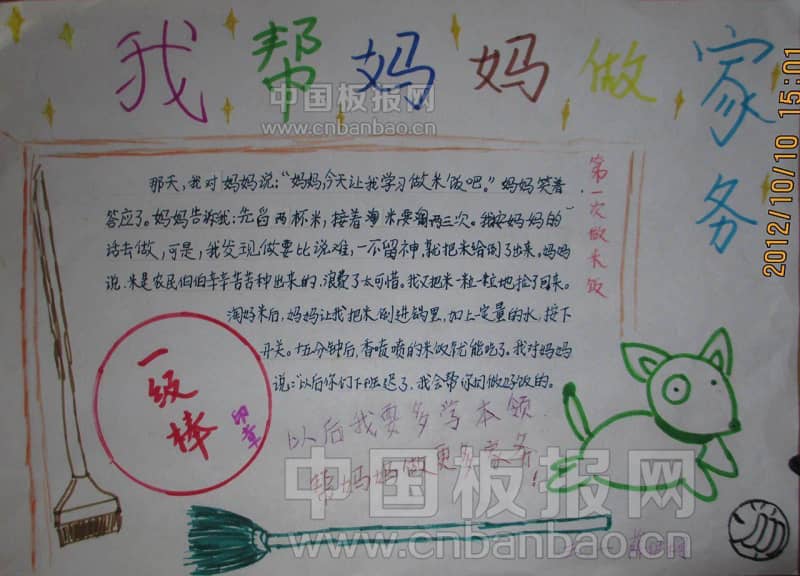 我帮妈妈做家务
中国板报网
www.cnbanbao.cn
2012/10/10 15:01
第一次做米饭
那天，我对妈妈说：“妈妈，今天让我学习做米饭吧。”妈妈笑着
答应了。妈妈告诉我：先舀两杯米，接着淘米要淘两三次。我按妈妈的
话去做，可是，我发现做要比说难，一不留神，就把米给倒了出来。妈妈
说，米是农民伯伯辛辛苦苦种出来的，浪费了太可惜。我又把米一粒一粒地捡了回来。
淘好米后，妈妈让我把米倒进锅里，加上定量的水，按下
开关。十五分钟后，香喷喷的米饭就能吃了。我对妈妈
说：“以后你们下班迟了，我会帮你们做好饭的。
一级棒
印章
以后我要多学本领
帮妈妈做更多家务！
中国板报网
www.cnbanbao.cn